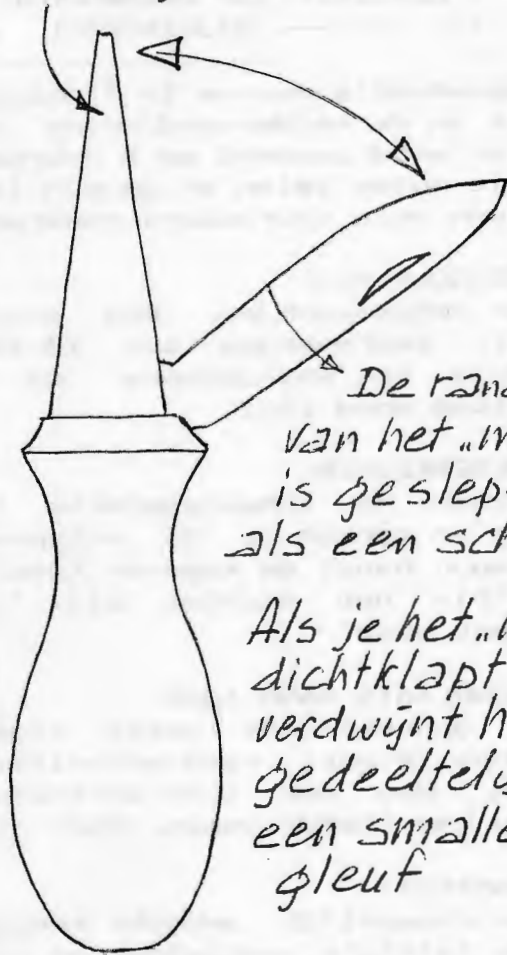 De rand
van het „m
is geslep
als een sch
Als je het „m
dichtklapt
verdwijnt h
gedeeltelij
een smalle
gleuf